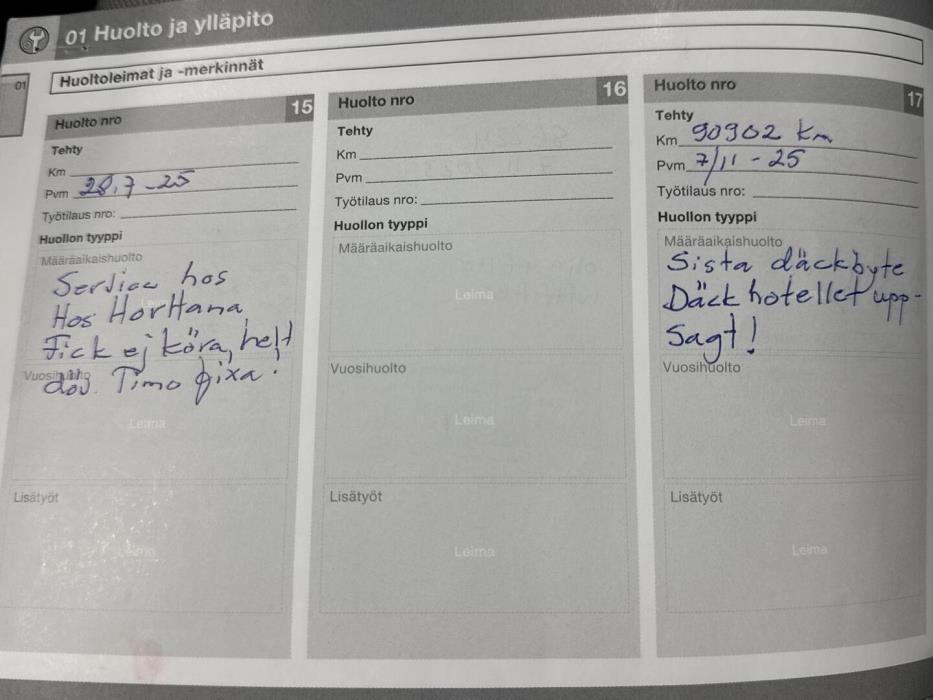 01 Huolto ja ylläpito
01
Huoltoleimat ja -merkinnät
Huolto nro 15
Tehty
Km
Pvm 28.7-25
Työtilaus nro:
Huollon tyyppi
Määräaikaishuolto
Service hos
Hos HorHana
Fick ej köra, helt
Vuosihuolto
död. Timo fixa!
Leima
Lisätyöt
Leima
Huolto nro 16
Tehty
Km
Pvm
Työtilaus nro:
Huollon tyyppi
Määräaikaishuolto
Leima
Vuosihuolto
Leima
Lisätyöt
Leima
Huolto nro 17
Tehty
Km 90902 km
Pvm 7/11-25
Työtilaus nro:
Huollon tyyppi
Määräaikaishuolto
Sista däckbyte
Däckhotellet upp-
sagt!
Vuosihuolto
Leima
Lisätyöt
Leima